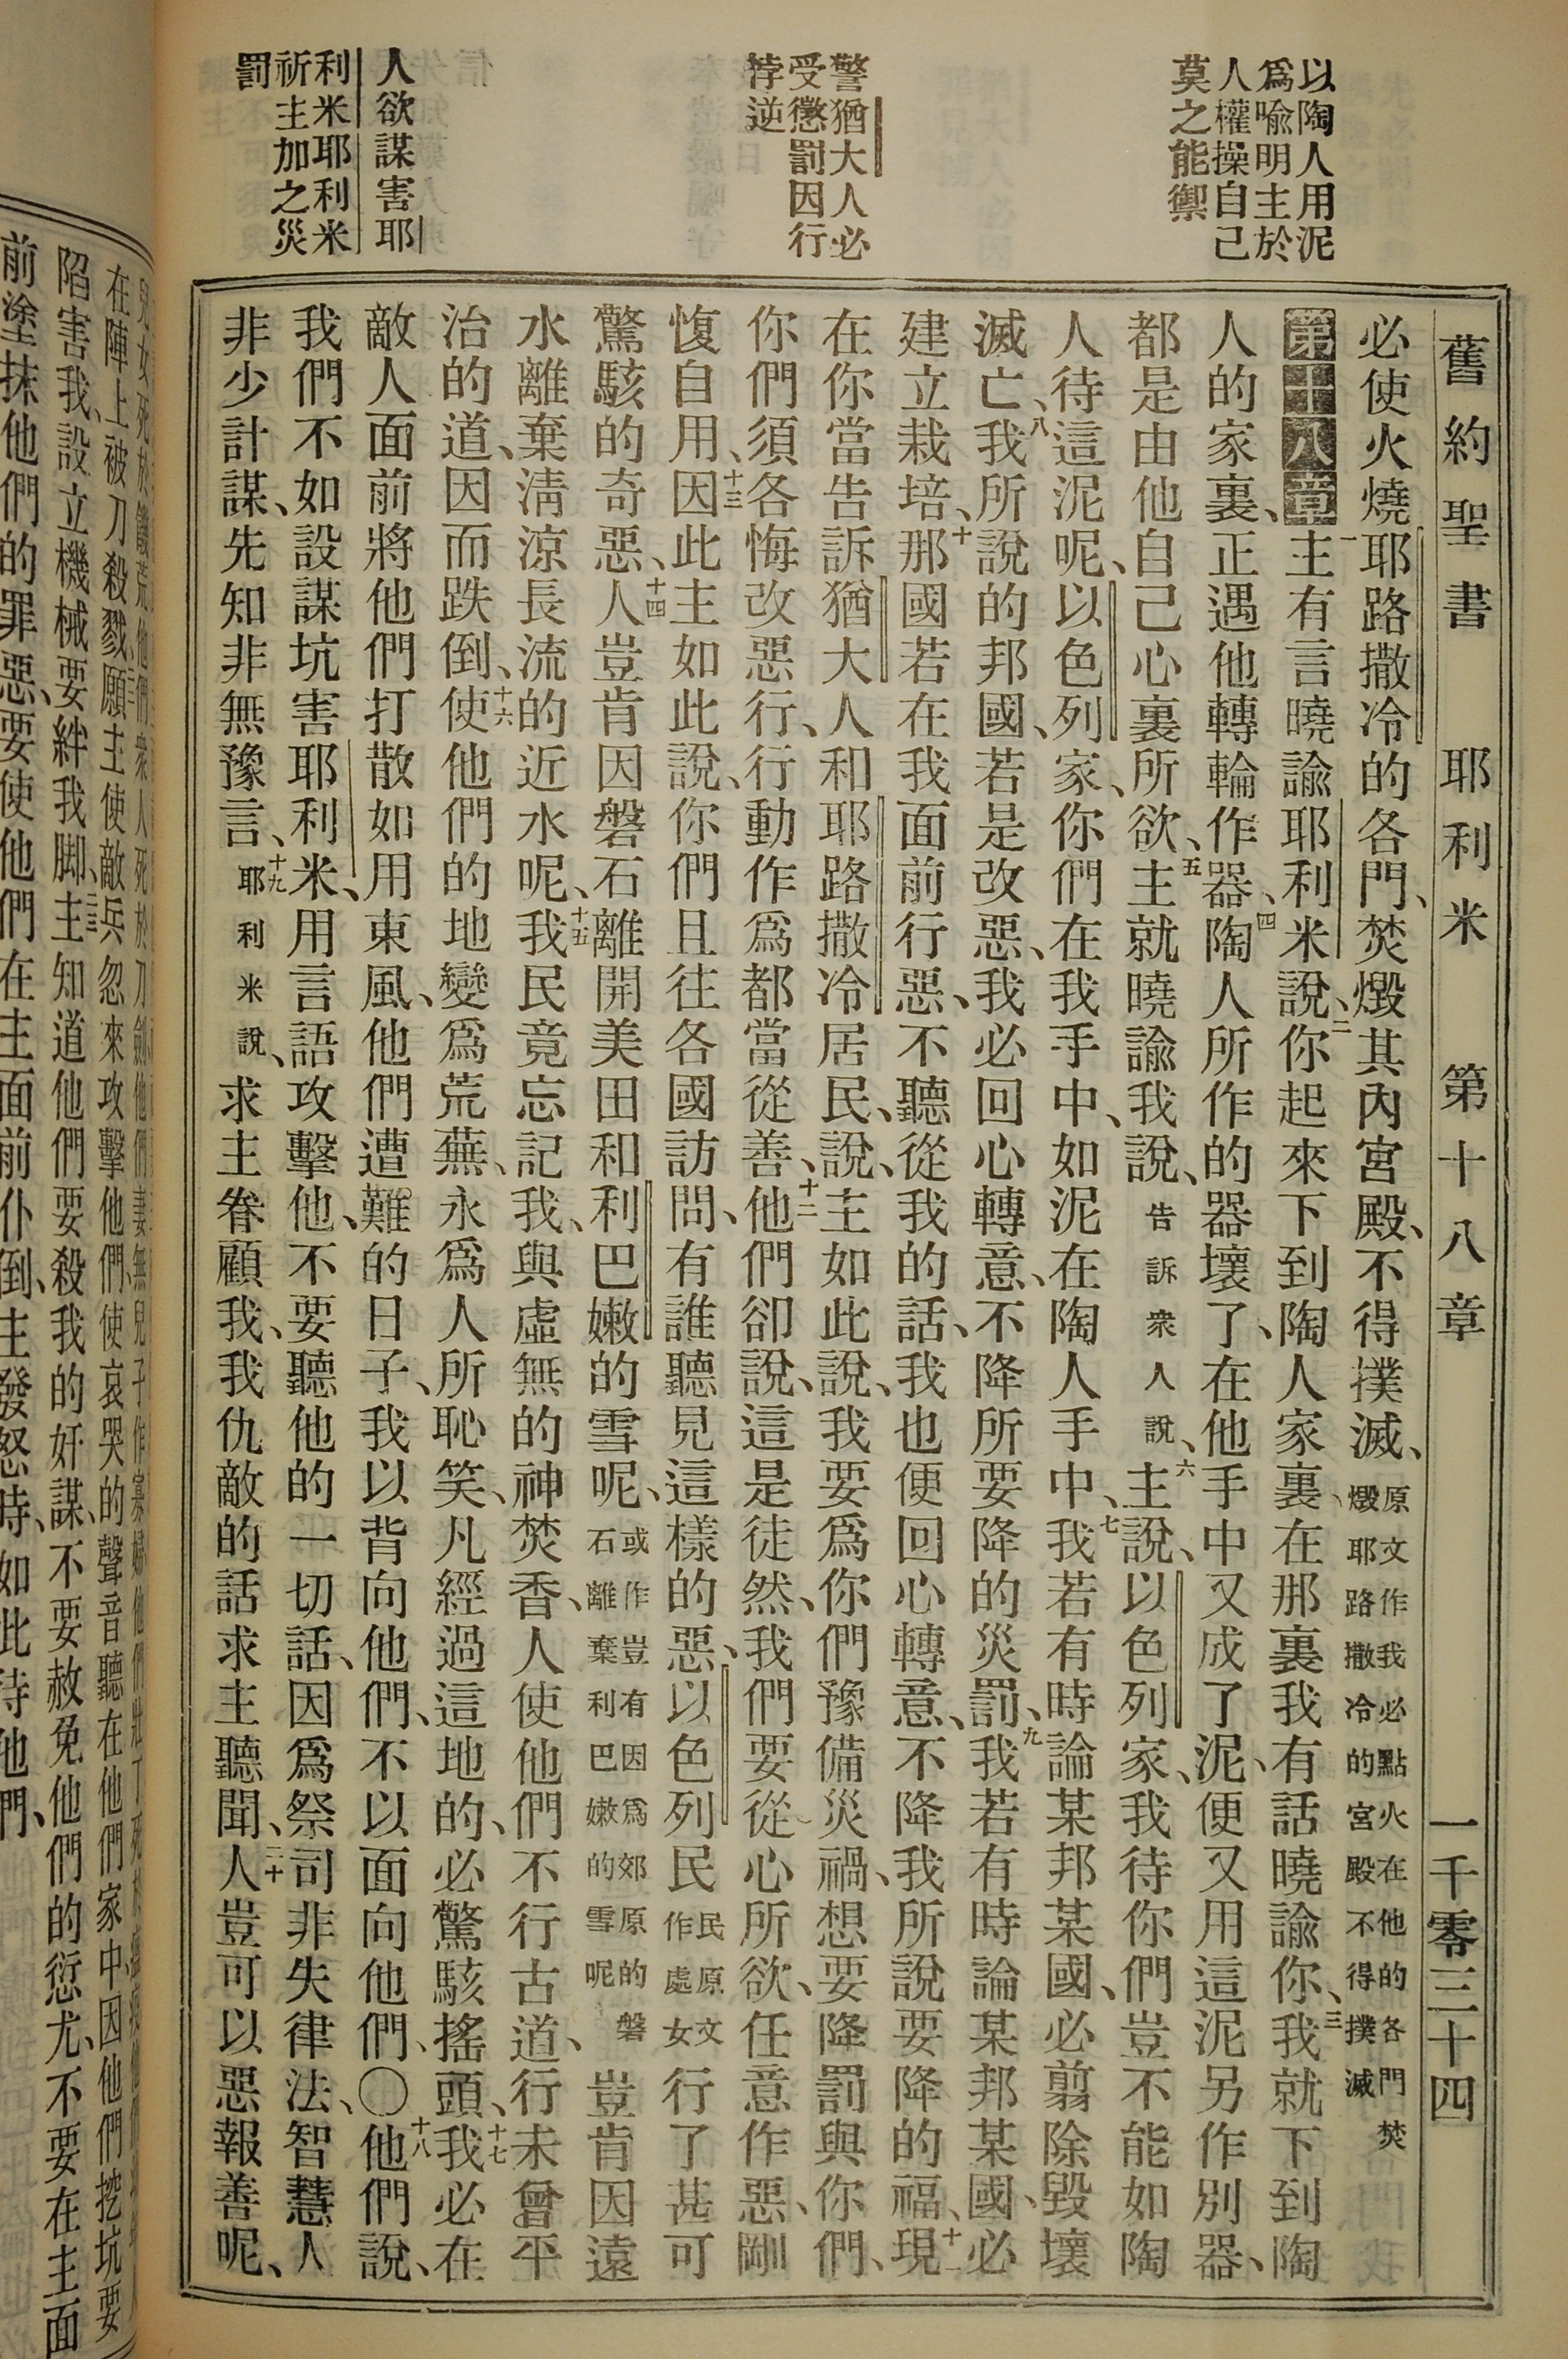 舊約聖書 耶利米 第十八章 一千零三十四
以陶人用泥
爲喩明主於
人權操自己
莫之能禦
警猶大人必
受懲罰因行
悖逆
人欲謀害耶
利米耶利米
祈主加之災
罰
必使火燒耶路撒冷的各門、焚燬其內宮殿、不得撲滅、原文作我必點火在他的各門焚燬耶路撒冷的宮殿不得撲滅
第十八章 一主有言曉諭耶利米說、二你起來下到陶人家裏、在那裏我有話曉諭你、三我就下到陶
人的家裏、正遇他轉輪作器、四陶人所作的器壞了、在他手中又成了泥、便又用這泥另作別器、
都是由他自己心裏所欲、五主就曉諭我說、告訴衆人說、六主說、以色列家、我待你們豈不能如陶
人待這泥呢、以色列家、你們在我手中、如泥在陶人手中、七我若有時論某邦某國、必翦除毀壞
滅亡、八我所說的邦國、若是改惡、我必回心轉意、不降所要降的災罰、九我若有時論某邦某國、必
建立栽培、十那國若在我面前行惡、不聽從我的話、我也便回心轉意、不降我所說要降的福、十一現
在你當告訴猶大人和耶路撒冷居民、說、主如此說、我要爲你們豫備災禍、想要降罰與你們、
你們須各悔改惡行、行動作爲都當從善、十二他們卻說、這是徒然、我們要從心所欲、任意作惡、剛
愎自用、十三因此主如此說、你們且往各國訪問、有誰聽見這樣的惡、以色列民民原文作處女行了甚可
驚駭的奇惡、十四人豈肯因磐石離開美田和利巴嫩的雪呢、或作豈有因爲郊原的磐石離棄利巴嫩的雪呢豈肯因遠
水離棄淸涼長流的近水呢、十五我民竟忘記我、與虛無的神焚香、人使他們不行古道、行未曾平
治的道、因而跌倒、十六使他們的地變爲荒蕪、永爲人所恥笑、凡經過這地的、必驚駭搖頭、十七我必在
敵人面前將他們打散如用東風、他們遭難的日子、我以背向他們、不以面向他們、〇十八他們說、
我們不如設謀坑害耶利米、用言語攻擊他、不要聽他的一切話、因爲祭司非失律法、智慧人
非少計謀、先知非無豫言、十九耶利米說、求主眷顧我、我仇敵的話求主聽聞、二十人豈可以惡報善呢、
在陣上被刀殺戮、二二願主使敵兵忽來攻擊他們、使哀哭的聲音聽在他們家中、因他們挖坑要
陷害我、設立機械要絆我脚、二三主知道他們要殺我的奸謀、不要赦免他們的愆尤、不要在主面
前塗抹他們的罪惡、要使他們在主面前仆倒、主發怒時、如此待他們、